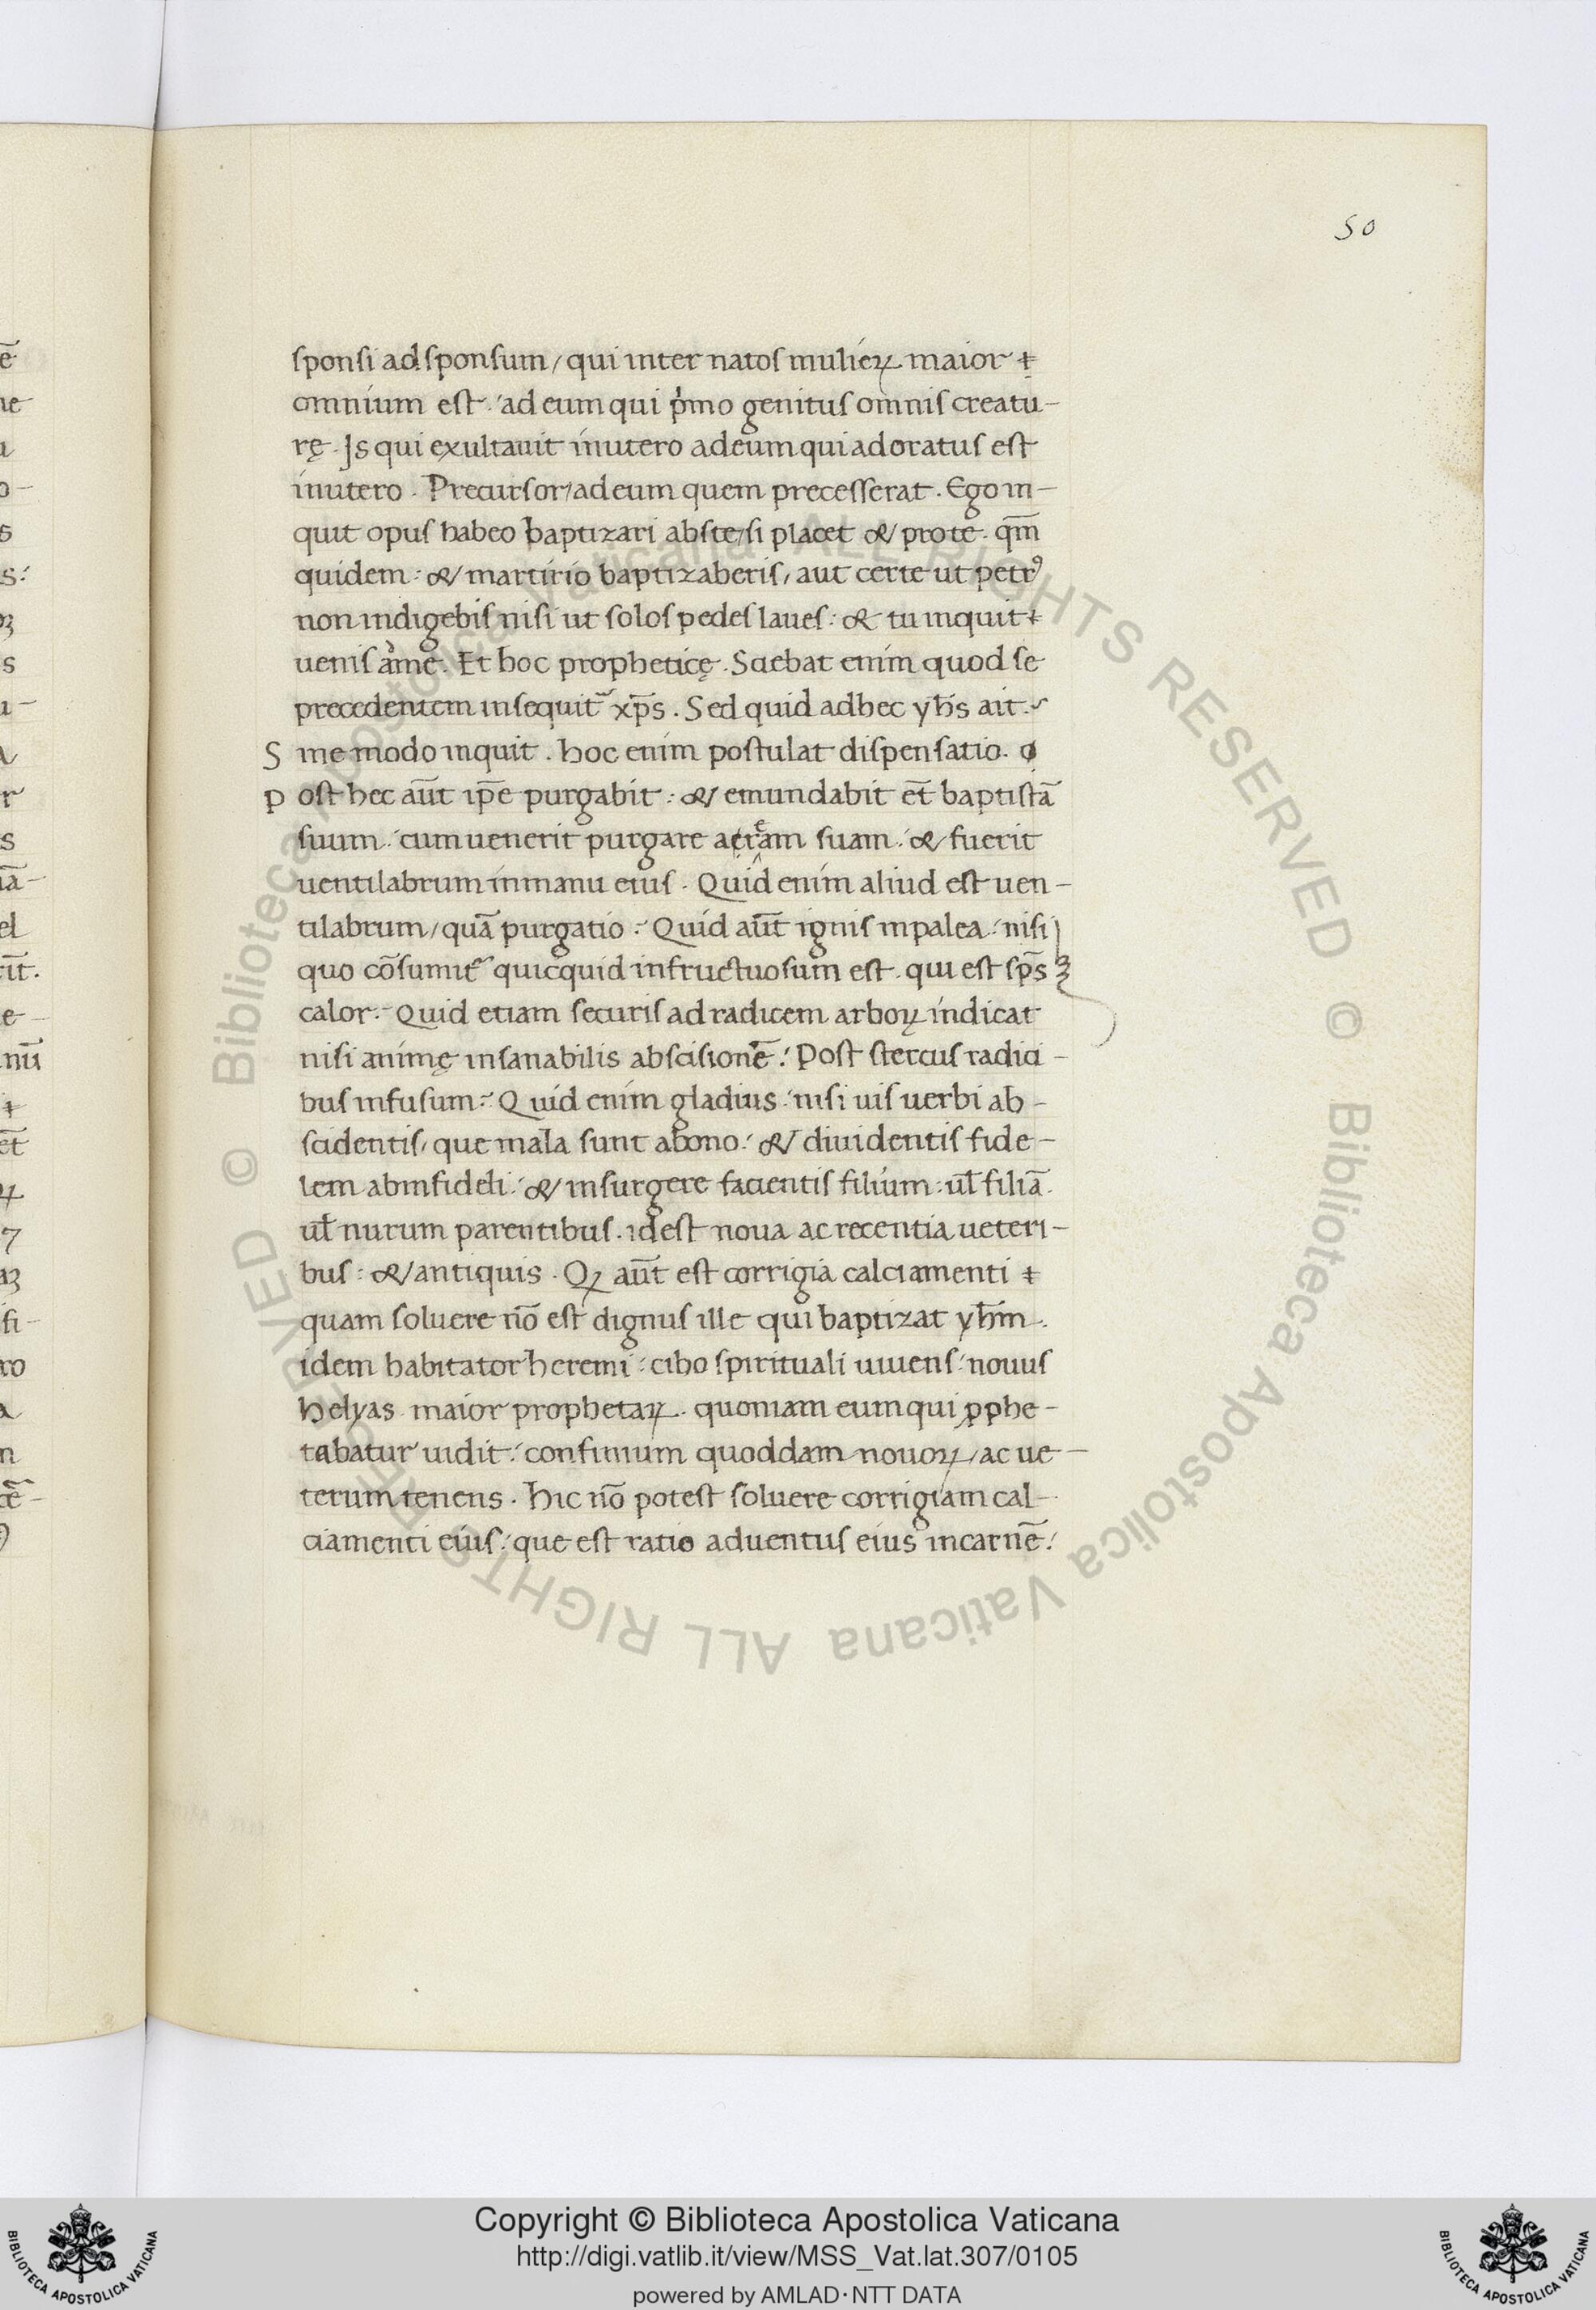 50
sponsi ad sponsum / qui inter natos mulieꝝ maior ŧ
omnium est ⸵ ad eum qui p̍mo genitus omnis creatu-
rę . Is qui exultauit inutero adeum qui adoratus est
inutero . Precursor / ad eum quem precesserat . Ego in-
quit opus habeo baptizari abste / si placet & prote . qm̅
quidem : & martirio baptizaberis / aut certe ut petrꝰ
non indigebis nisi ut solos pedes laues : & tu inquit ŧ
uenis ame . Et hoc propheticę . Sciebat enim quod se
precedentem insequit᷑ xp̅s . Sed quid adhec yh̅s ait .
S me modo inquit . hoc enim postulat dispensatio .
p ost hec au̅t ip̅e purgabit : & emundabit et̅ baptista̅
suum ⸵ cum uenerit purgare ae ream suam ⸵ & fuerit
uentilabrum inmanu eius . Quid enim aliud est uen-
tilabrum / qua̅ purgatio : Quid au̅t ignis inpalea ⸵ nisi
quo co̅sumit᷑ quicquid infructuosum est . qui est sp̅s
calor : Quid etiam securis ad radicem arboꝝ indicat
nisi animę insanabilis abscisione̅ ⸵ Post stercus radici-
bus infusum : Quid enim gladius ⸵ nisi uis uerbi ab-
scidentis / que mala sunt abono ⸵ & diuidentis fide-
lem abinfideli ⸵ & insurgere facientis filium : ul̅ filia̅ .
ul̅ nurum parentibus . idest noua ac recentia ueteri-
bus : & antiquis . Qꝝ au̅t est corrigia calciamenti ŧ
quam soluere no̅ est dignus ille qui baptizat yh̅m .
idem habitator heremi : cibo spirituali uiuens ⸵ nouus
helyas . maior prophetaꝝ . quoniam eum qui ꝓphe-
tabatur uidit ⸵ confinium quoddam nouoꝝ / ac ue-
terum tenens . Hic no̅ potest soluere corrigiam cal-
ciamenti eius ⸵ que est ratio aduentus eius incarne̅ ⸵
Copyright © Biblioteca Apostolica Vaticana
http://digi.vatlib.it/view/MSS_Vat.lat.307/0105
powered by AMLAD·NTT DATA